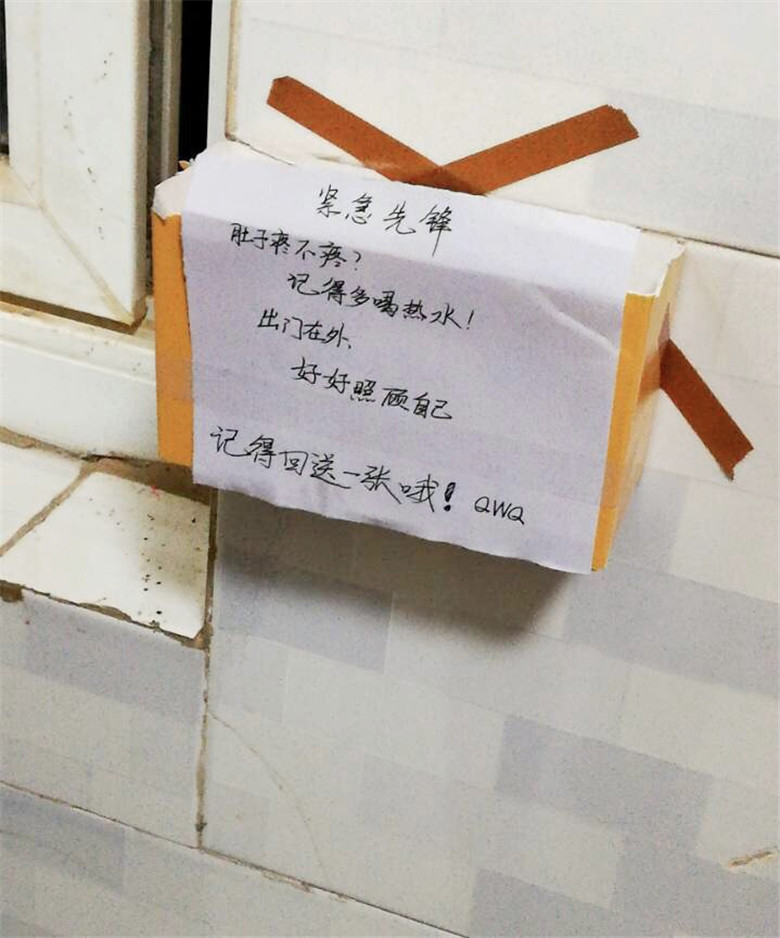 紧急先锋
肚子疼不疼？
记得多喝热水！
出门在外、
好好照顾自己
记得回送一张哦！QWQ